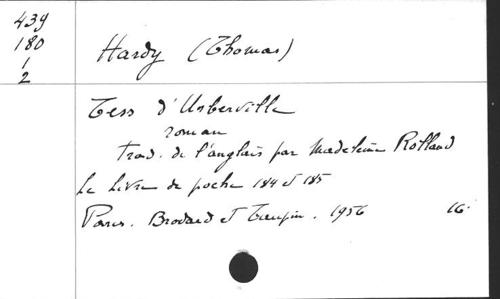 439
180
1
2
Hardy (Thomas)
Tess d'Urberville
roman
trad. de l'anglais par Madeleine Rolland
Le Livre de poche 184 et 185
Paris. Brodard et Taupin. 1956 16.